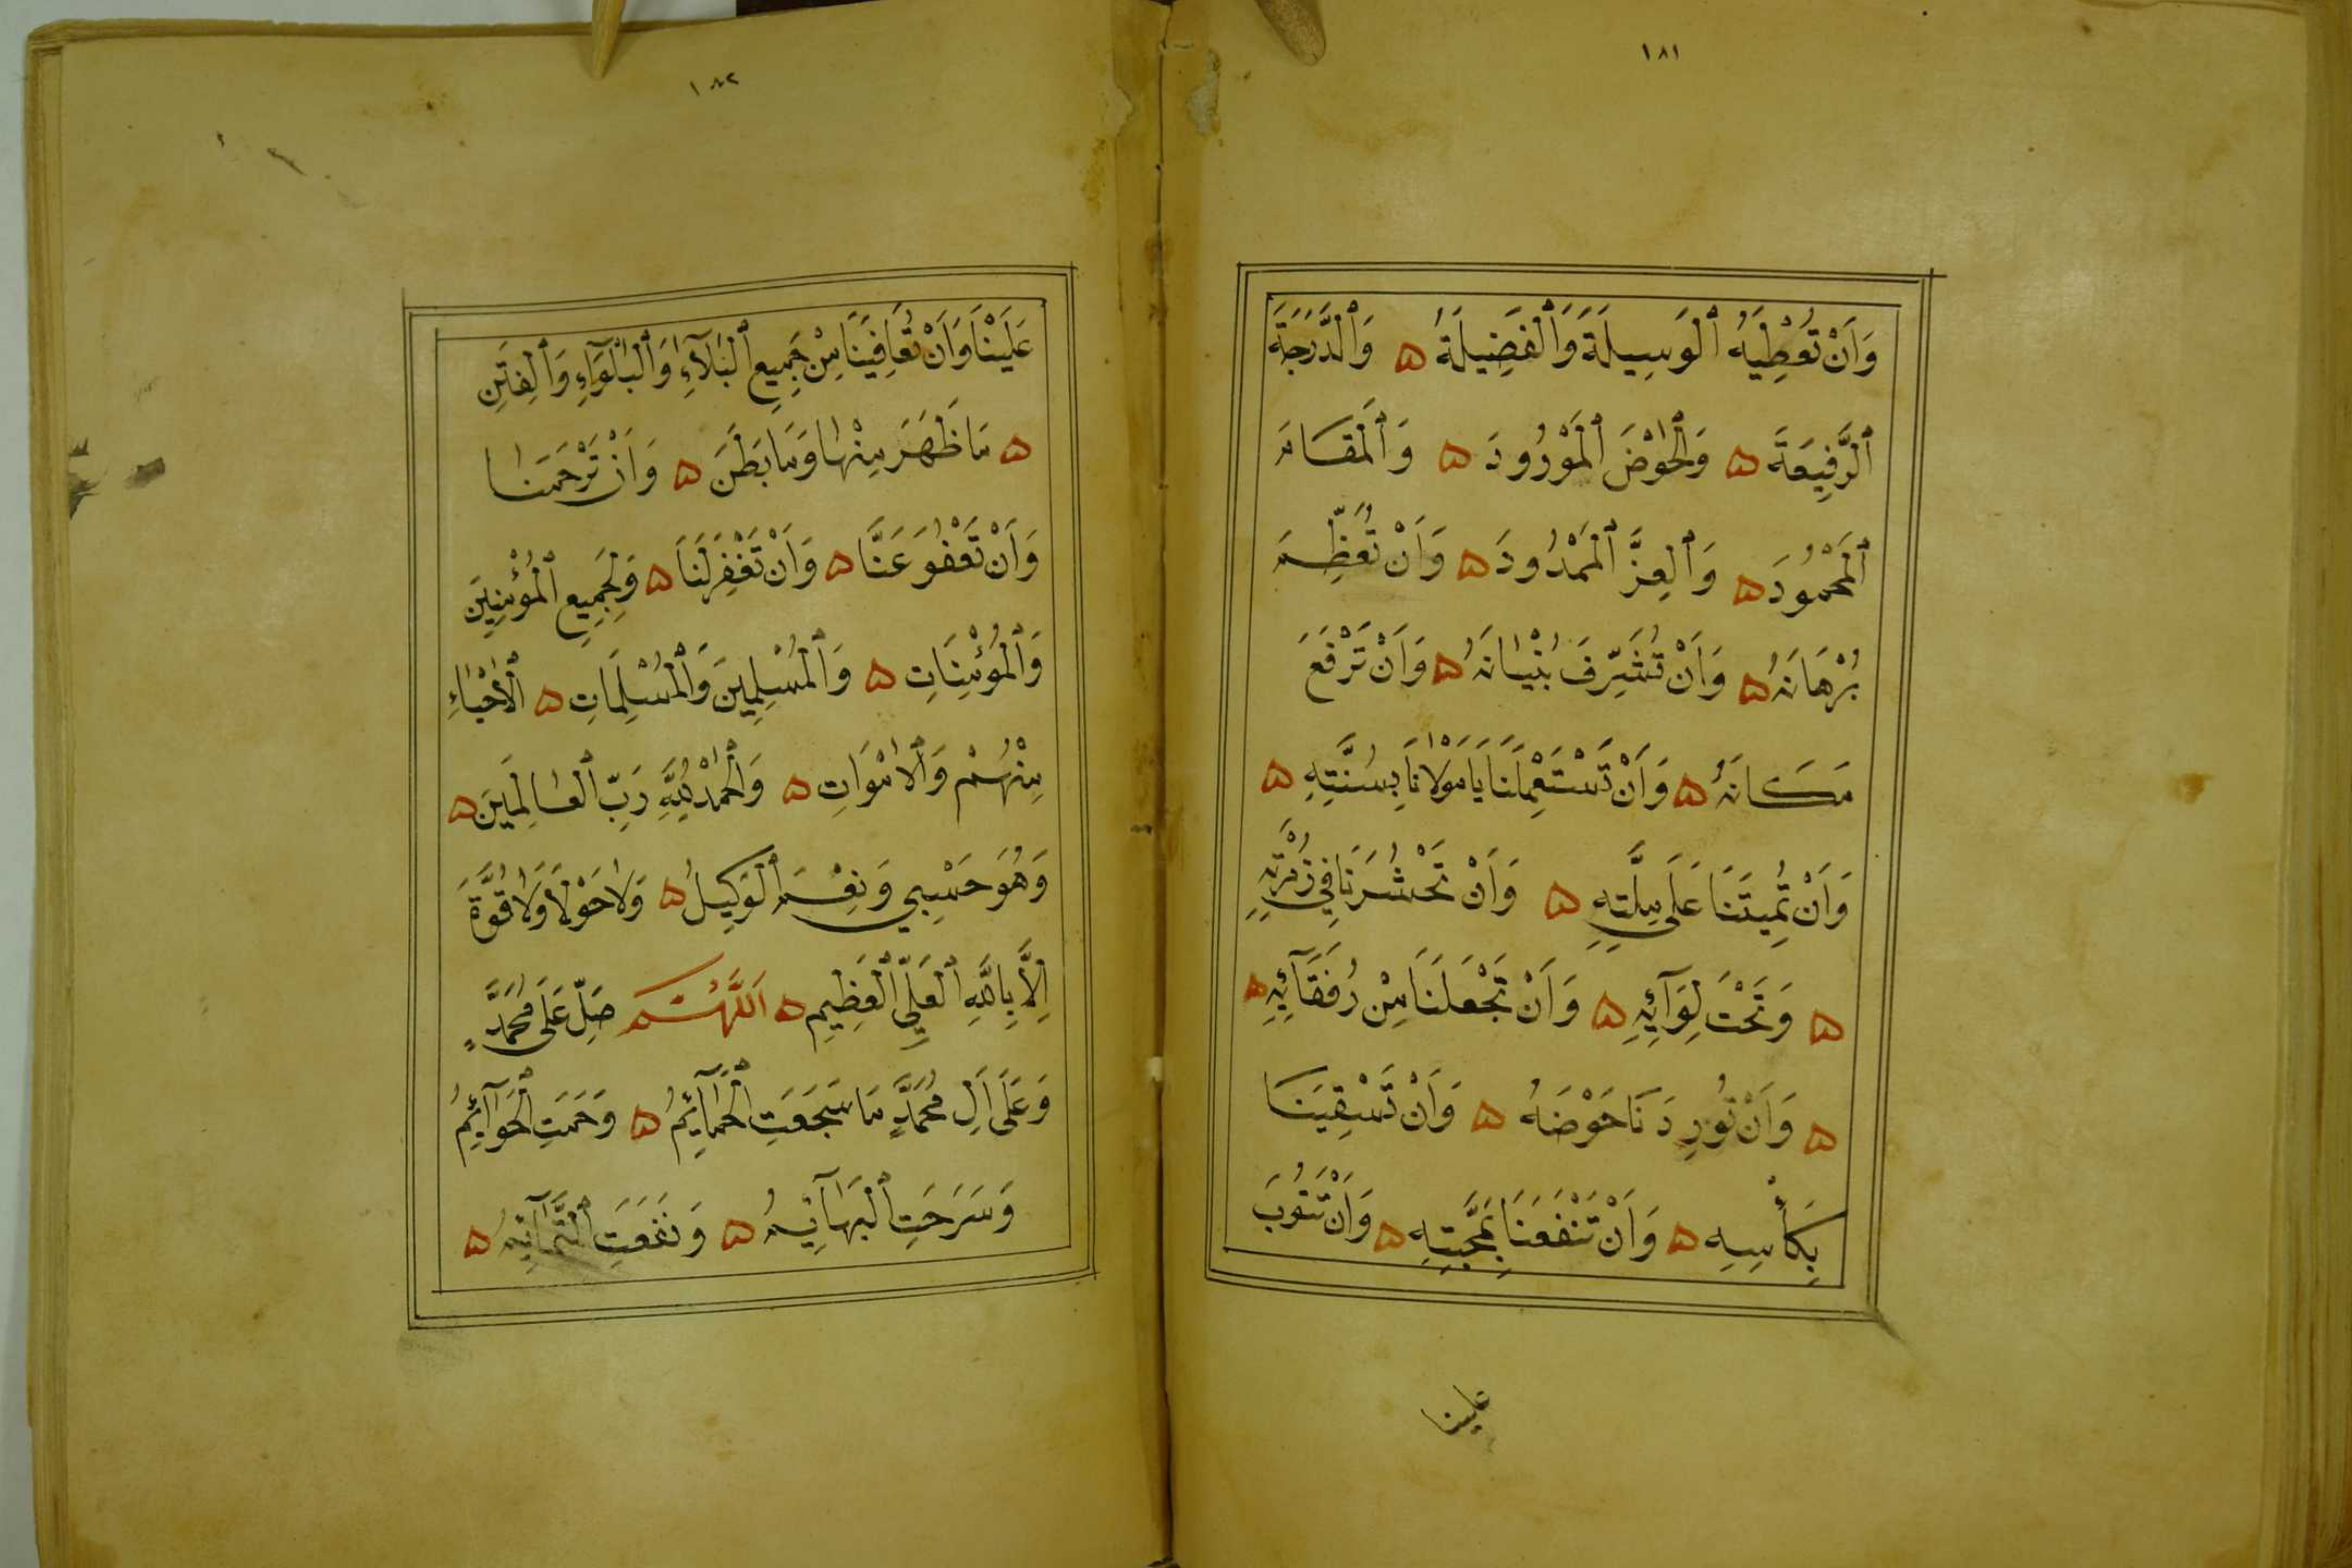 ١٨١
وَاَنْ تُعْطِيَهُ ٱلْوَسِيلَةَ وَٱلْفَضِيلَةَ ۵ وَٱلدَّرَجَةَ
ٱلرَّفِيعَةَ ۵ وَٱلْحَوْضَ ٱلْمَوْرُودَ ۵ وَٱلْمَقَامَ
ٱلْمَحْمُودَ ۵ وَٱلْعِزَّ ٱلْمَمْدُودَ ۵ وَاَنْ تُعَظِّمَ
بُرْهَانَهُ ۵ وَاَنْ تُشَرِّفَ بُنْيَانَهُ ۵ وَاَنْ تَرْفَعَ
مَكَانَهُ ۵ وَاَنْ تَسْتَعْمِلَنَا يَا مَوْلَانَا بِسُنَّتِهِ ۵
وَاَنْ تُمِيتَنَا عَلَى مِلَّتِهِ ۵ وَاَنْ تَحْشُرَنَا فِي زُمْرَتِهِ
۵ وَتَحْتَ لِوَآئِهِ ۵ وَاَنْ تَجْعَلَنَا مِنْ رُفَقَآئِهِ ۵
۵ وَاَنْ تُورِدَنَا حَوْضَهُ ۵ وَاَنْ تَسْقِيَنَا
بِكَأْسِهِ ۵ وَاَنْ تَنْفَعَنَا بِمَحَبَّتِهِ ۵ وَاَنْ تَتُوبَ
علينا
١٨٢
عَلَيْنَا وَاَنْ تُعَافِيَنَا مِنْ جَمِيعِ ٱلْبَلَآءِ وَٱلْبَلْوَآءِ وَٱلْفِتَنِ
۵ مَا ظَهَرَ مِنْهَا وَمَا بَطَنَ ۵ وَاَنْ تَرْحَمَنَا
وَاَنْ تَعْفُوَ عَنَّا ۵ وَاَنْ تَغْفِرَ لَنَا ۵ وَلِجَمِيعِ ٱلْمُؤْمِنِينَ
وَٱلْمُؤْمِنَاتِ ۵ وَٱلْمُسْلِمِينَ وَٱلْمُسْلِمَاتِ ۵ ٱلْأَحْيَاءِ
مِنْهُمْ وَٱلْاَمْوَاتِ ۵ وَٱلْحَمْدُ لِلّٰهِ رَبِّ ٱلْعَالَمِينَ ۵
وَهُوَ حَسْبِي وَنِعْمَ ٱلْوَكِيلُ ۵ وَلَا حَوْلَ وَلَا قُوَّةَ
اِلَّا بِاللّٰهِ ٱلْعَلِيِّ ٱلْعَظِيمِ ۵ اَللّٰهُمَّ صَلِّ عَلَى مُحَمَّدٍ
وَعَلَى اٰلِ مُحَمَّدٍ مَا سَجَعَتِ ٱلْحَمَآئِمُ ۵ وَحَمَتِ ٱلْحَوَآئِمُ
وَسَرَحَتِ ٱلْبَهَآئِمُ ۵ وَنَفَعَتِ ٱلتَّمَآئِمُ ۵